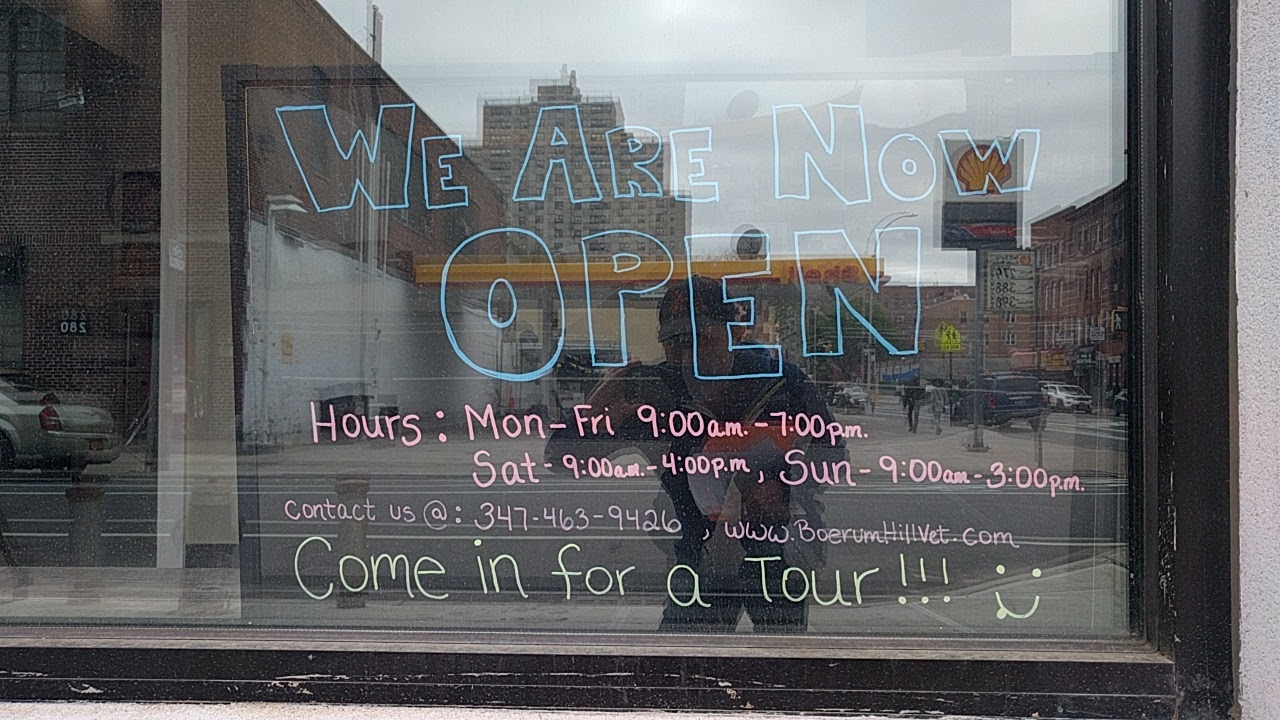 We Are Now
OPEN
Hours: Mon-Fri 9:00a.m.-7:00p.m.
Sat-9:00am.-4:00p.m, Sun-9:00am-3:00p.m.
contact us @: 347-463-9426 , www.BoerumHillVet.com
Come in for a Tour!!! :)
280
Shell